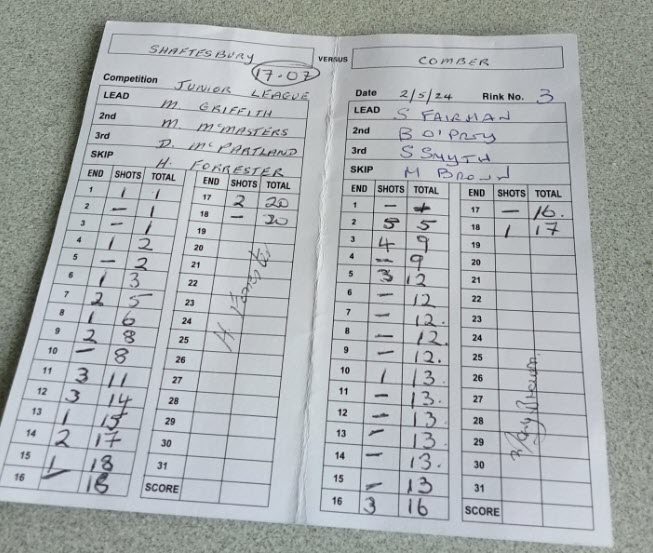 SHAFTESBURY VERSUS COMBER
17-07
Competition JUNIOR LEAGUE
LEAD M. GRIFFITH
2nd M. McMASTERS
3rd D. McPARTLAND
SKIP H. FORRESTER
END SHOTS TOTAL END SHOTS TOTAL
1 1 1 17 2 20
2 - 1 18 - 20
3 - 1 19
4 1 2 20
5 - 2 21
6 1 3 22
7 2 5 23
8 1 6 24
9 2 8 25
10 - 8 26
11 3 11 27
12 3 14 28
13 1 15 29
14 2 17 30
15 1 18 31
16 - 18 SCORE
H. Forrester
Date 2/5/24 Rink No. 3
LEAD S FAIRMAN
2nd B O'PREY
3rd S SMYTH
SKIP M BROWN
END SHOTS TOTAL END SHOTS TOTAL
1 - 17 - 16.
2 5 5 18 1 17
3 4 9 19
4 - 9 20
5 3 12 21
6 - 12 22
7 - 12. 23
8 - 12. 24
9 - 12. 25
10 1 13. 26
11 - 13. 27
12 - 13. 28
13 - 13. 29
14 - 13. 30
15 - 13 31
16 3 16 SCORE
Brown